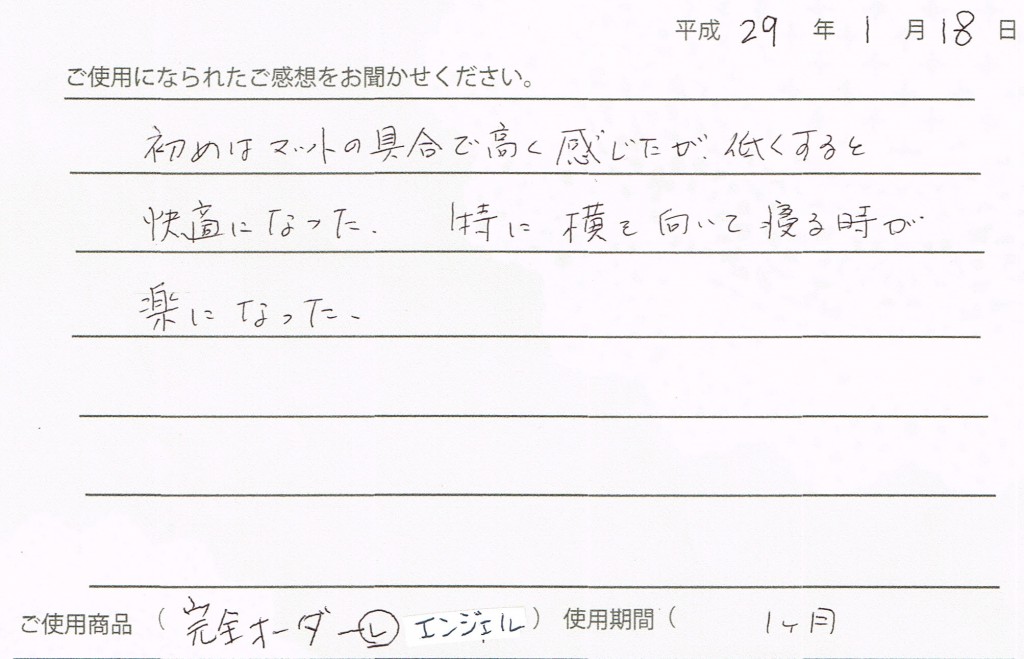 平成 29 年 1 月 18 日
ご使用になられたご感想をお聞かせください。
初めはマットの具合で高く感じたが、低くすると
快適になった。 特に横を向いて寝る時が
楽になった。
ご使用商品 ( 完全オーダーⓁ エンジェル ) 使用期間 ( 1ヶ月